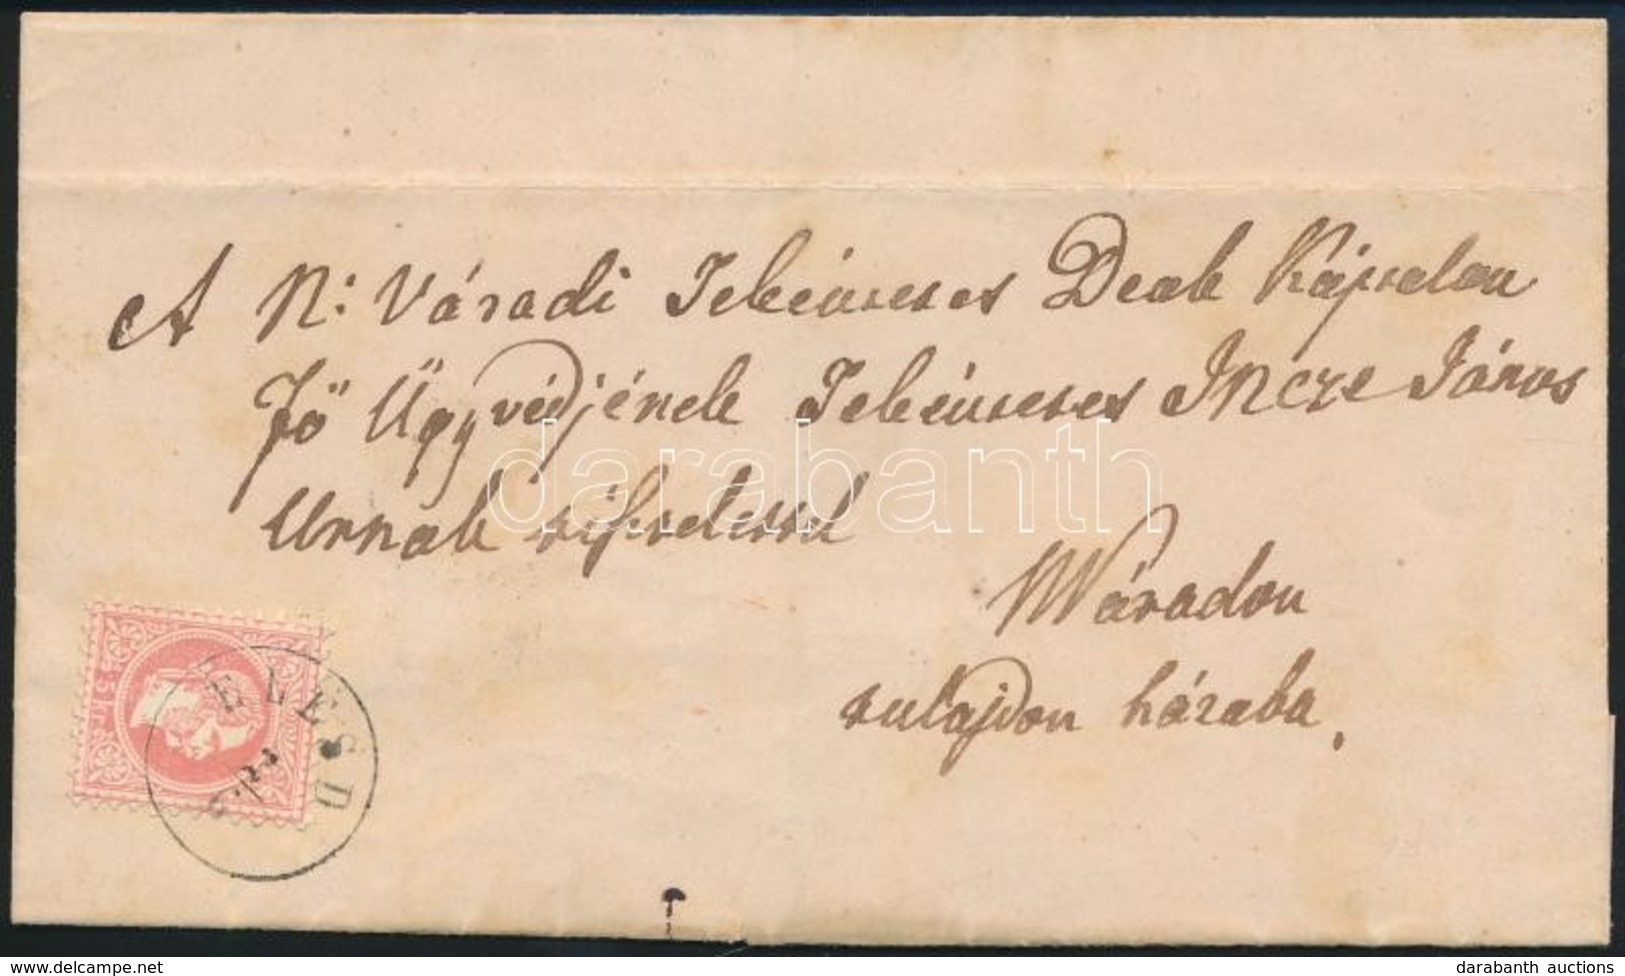 A N: Váradi Tekéntetes Deak Káptalan
Fő Ügyvédjének Tekéntetes Incze János
Urnak tisztelettel
Váradon
tulajdon házaba.
ELESD
5 kr
darabanth
delcampe.net
darabanth auctions